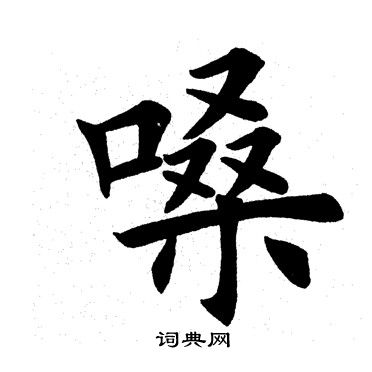 嗓
词典网